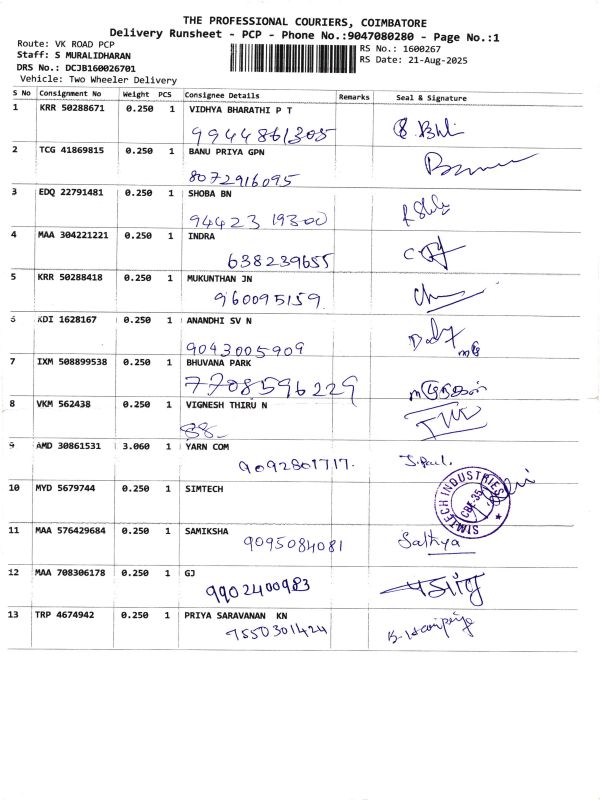 THE PROFESSIONAL COURIERS, COIMBATORE
Delivery Runsheet - PCP - Phone No.:9047080280 - Page No.:1
Route: VK ROAD PCP
RS No.: 1600267
Staff: S MURALIDHARAN
RS Date: 21-Aug-2025
DRS No.: DCJB160026701
Vehicle: Two Wheeler Delivery
S No Consignment No Weight PCS Consignee Details Remarks Seal & Signature
1 KRR 50288671 0.250 1 VIDHYA BHARATHI P T
9944861305
2 TCG 41869815 0.250 1 BANU PRIYA GPN
8072916095
3 EDQ 22791481 0.250 1 SHOBA BN
94423 19300
4 MAA 304221221 0.250 1 INDRA
638239655
5 KRR 50288418 0.250 1 MUKUNTHAN JN
960095159
6 KDI 1628167 0.250 1 ANANDHI SV N
9043005909
7 IXM 508899538 0.250 1 BHUVANA PARK
7708596229
8 VKM 562438 0.250 1 VIGNESH THIRU N
88
9 AMD 30861531 3.060 1 YARN COM
9092801717.
10 MYD 5679744 0.250 1 SIMTECH
SIMTECH INDUSTRIES
CBE-35
11 MAA 576429684 0.250 1 SAMIKSHA
9095084081 Sathya
12 MAA 708306178 0.250 1 GJ
9902400983
13 TRP 4674942 0.250 1 PRIYA SARAVANAN KN
7550301424